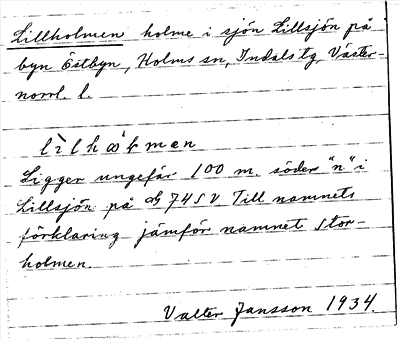 Lillholmen holme i sjön Lillsjön på
byn Östbyn, Holms sn, Indals tg, Väster-
norrl. l.
Ligger ungefär 100 m. söder "n" i
Lillsjön på G 74 SV. Till namnets
förklaring jämför namnet Stor-
holmen.
Valter Jansson 1934.